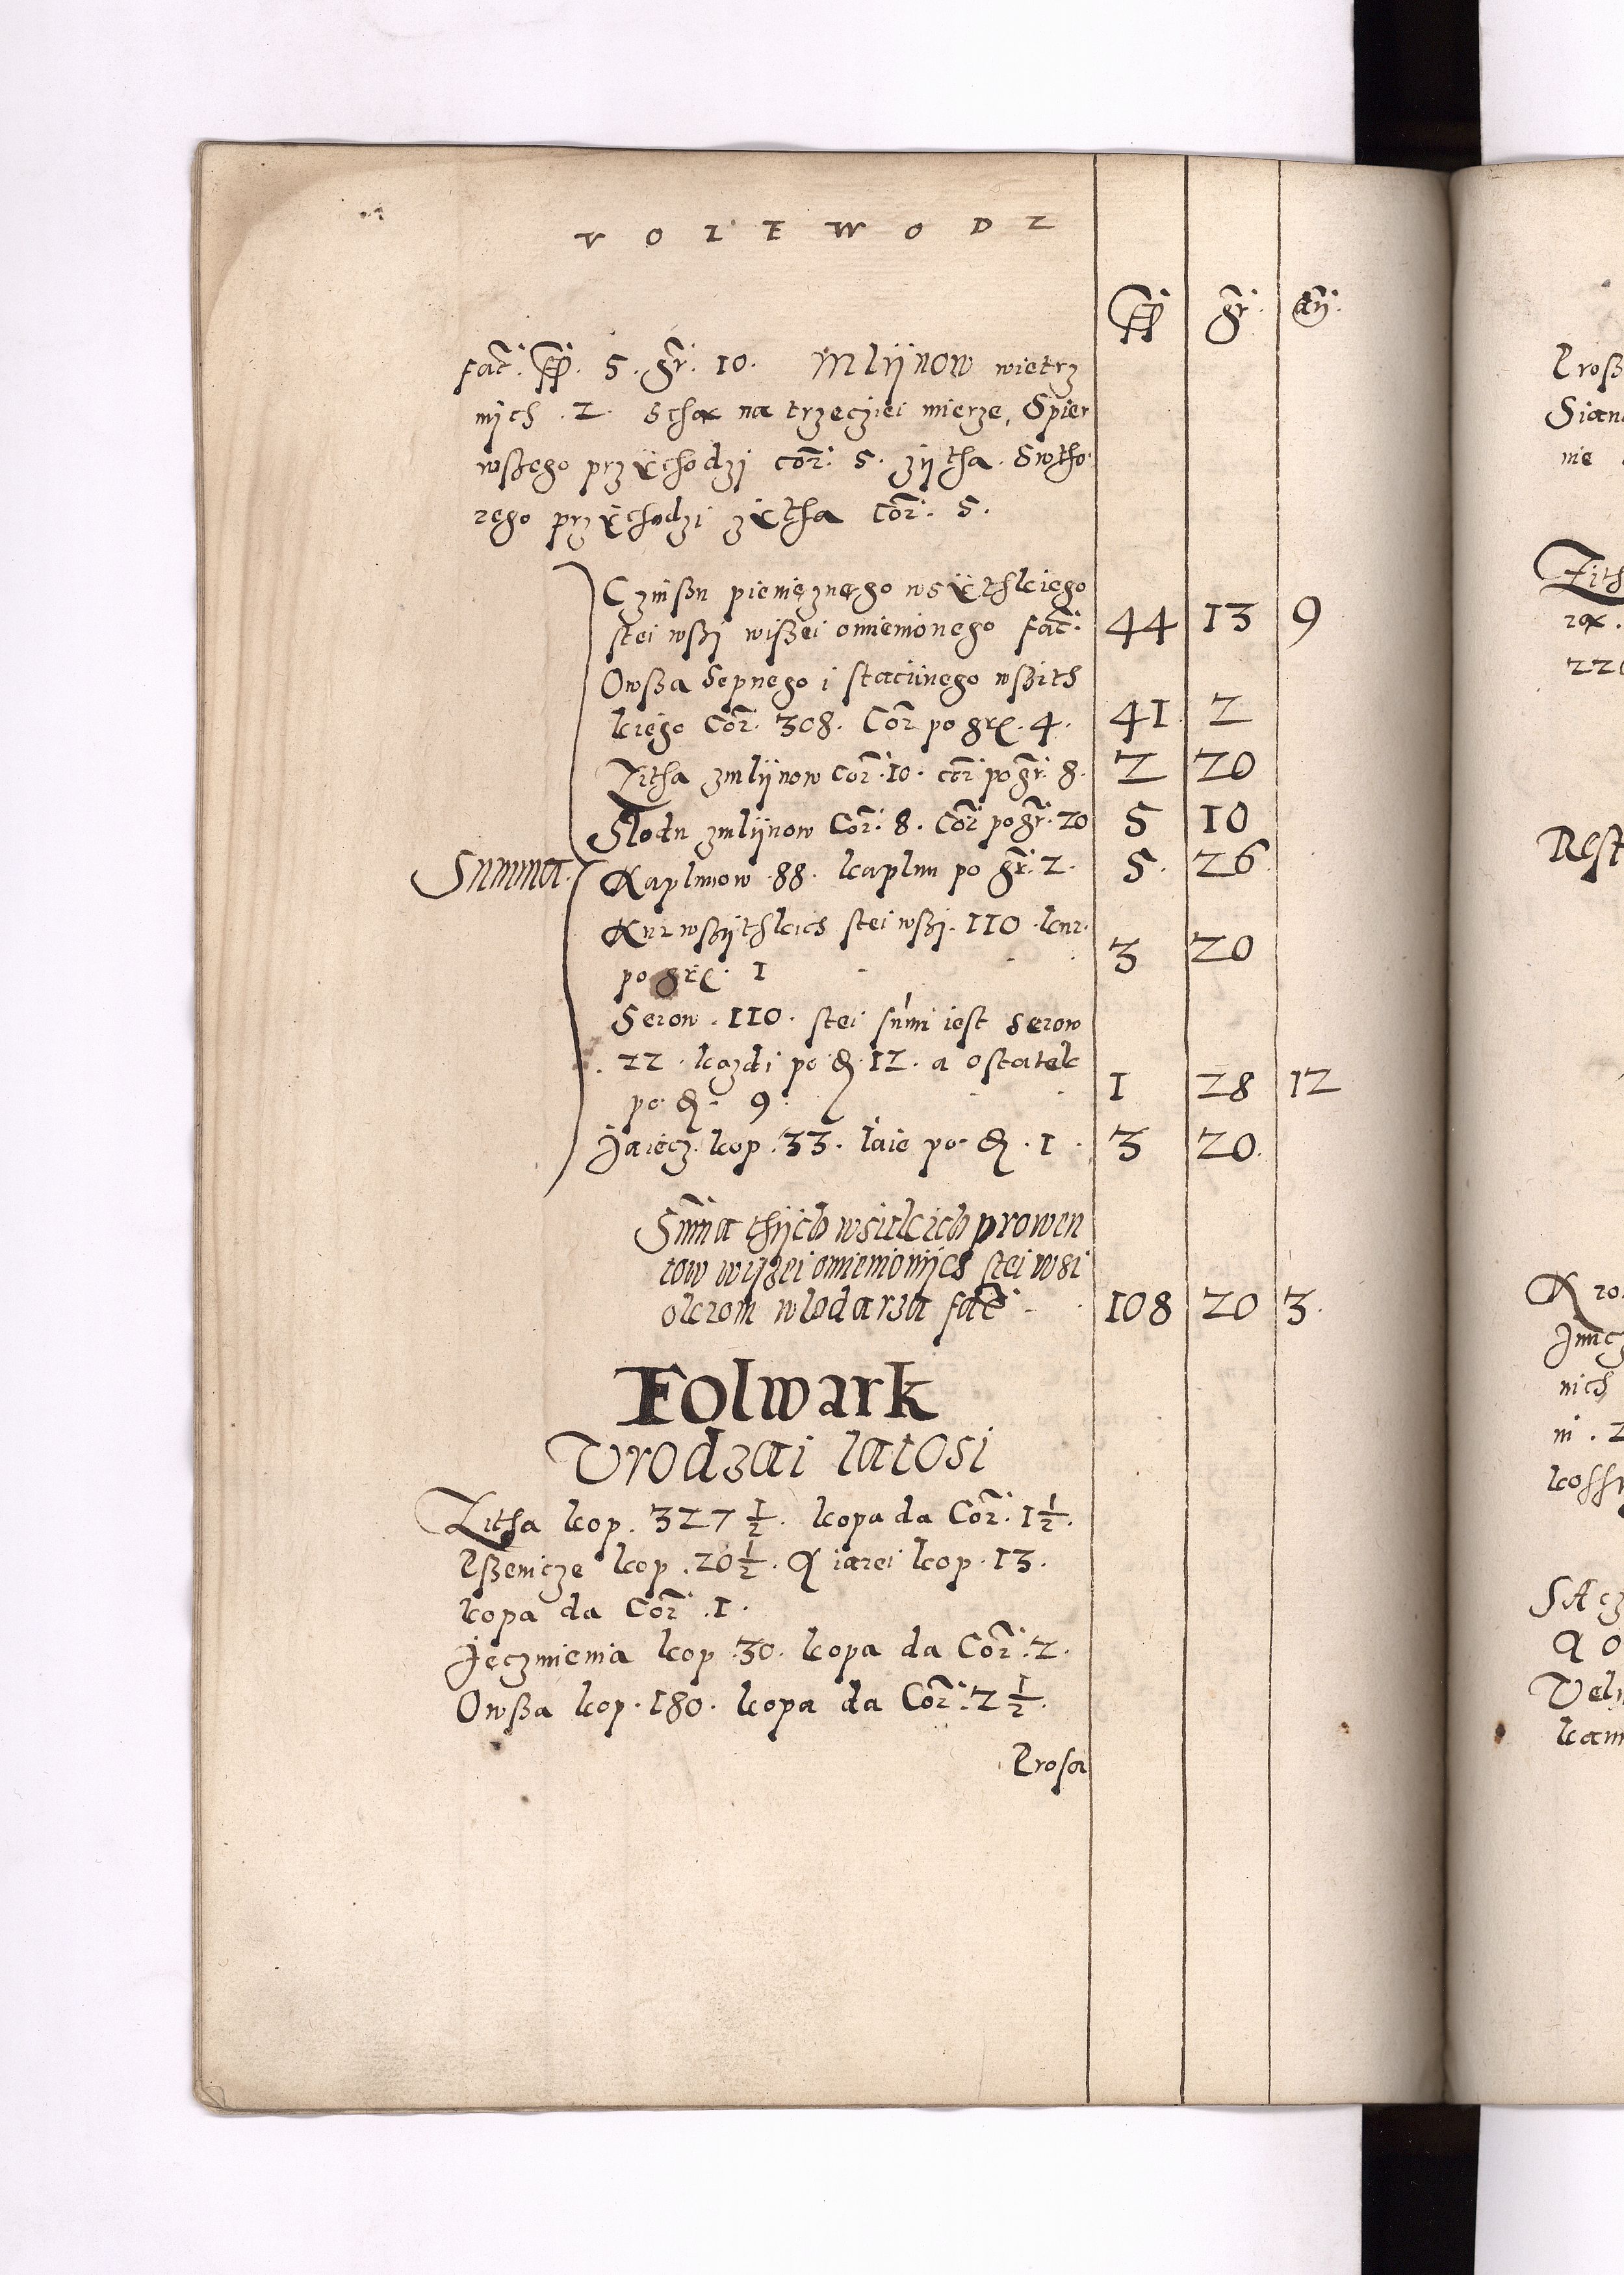 VOIEWODZ
ff gr. dn.
fac. ff. 5. gr. 10. Mlijnow wietrz
nijch .2. stha na trzeczjei mierze, Spier
wßego przÿchodzj cor. 5. zijtha. Swtho
rego przÿchodzi zÿtha Cor. 5.
Czinßu pieniężnego wsÿthkiego
stei wßj wißei omienionego fac. 44 13 9
Owßa Sepnego i stacÿinego wßith
kiego Cor. 308. Cor po grß. 4. 41 2
Zitha zmlijnow Cor. 10. cor po gr. 8. 2 20
Slodu zmlijnow Cor. 8. Cor po gr. 20 5 10
Summa. Kaplunow .88. kaplun po gr. 2. 5. 26
Kur wßijthkich stei wßj. 110 .kur.
po grß. 1 3 20
Serow .110. stei sumi iest serow
.22. kazdi po d. 12. a ostatek
po d. 9. 1 28 12
Jaiecz. kop .33. iaie po d. 1. 3 20.
Suma thÿch wsitkich prowen
tow wÿzei omienionÿch stei wsi
okrom wlodarza fac 108 20 3.
Folwark
Vrodzai latosi
Zitha kop. 327 1/2. kopa da Cor. 1 1/2.
Pßenicze kop .20 1/2. A iarei kop. 13.
kopa da Cor .1.
Jęczmienia kop .30. kopa da Cor. 2.
Owßa kop. 180. kopa da Cor. 2 1/2.
Prosa
Proß
Sian
nie
Zith
ra.
22
Rest
Kro
Jnncz
nich
ni . 2
SAcz
A o
Veln
kam